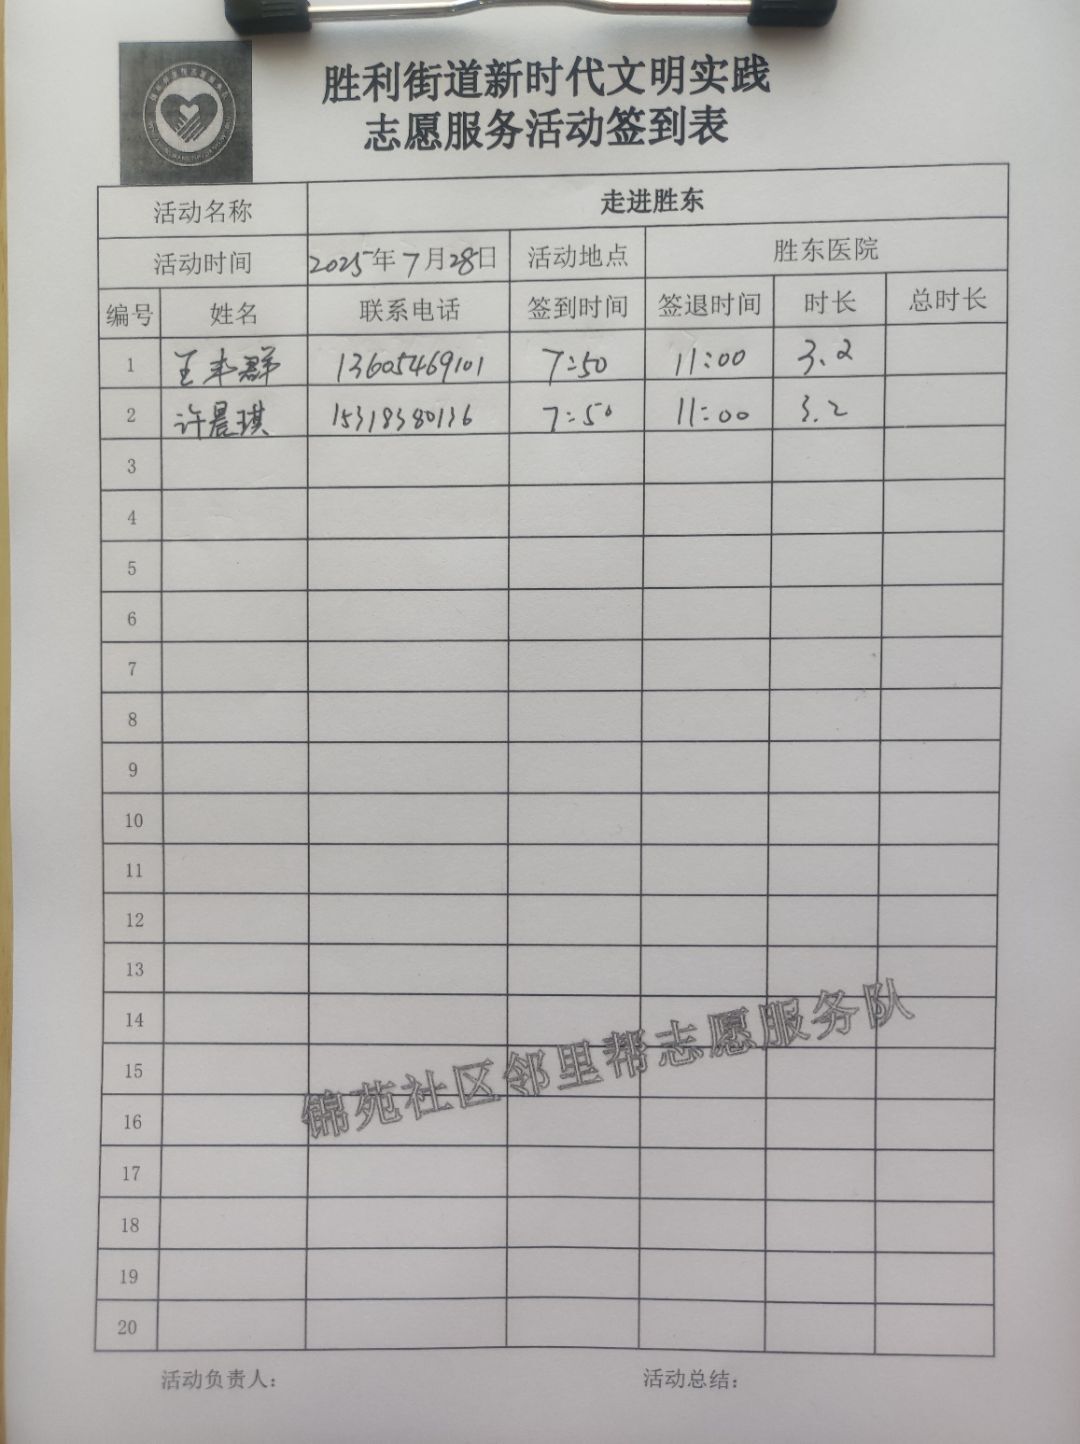 胜利街道新时代文明实践
志愿服务活动签到表
活动名称 走进胜东
活动时间 2025年7月28日 活动地点 胜东医院
编号 姓名 联系电话 签到时间 签退时间 时长 总时长
1 王丰群 13605469101 7:50 11:00 3.2
2 许晨琪 15318380136 7:50 11:00 3.2
3
4
5
6
7
8
9
10
11
12
13
14
15
16
17
18
19
20
锦苑社区邻里帮志愿服务队
活动负责人： 活动总结：